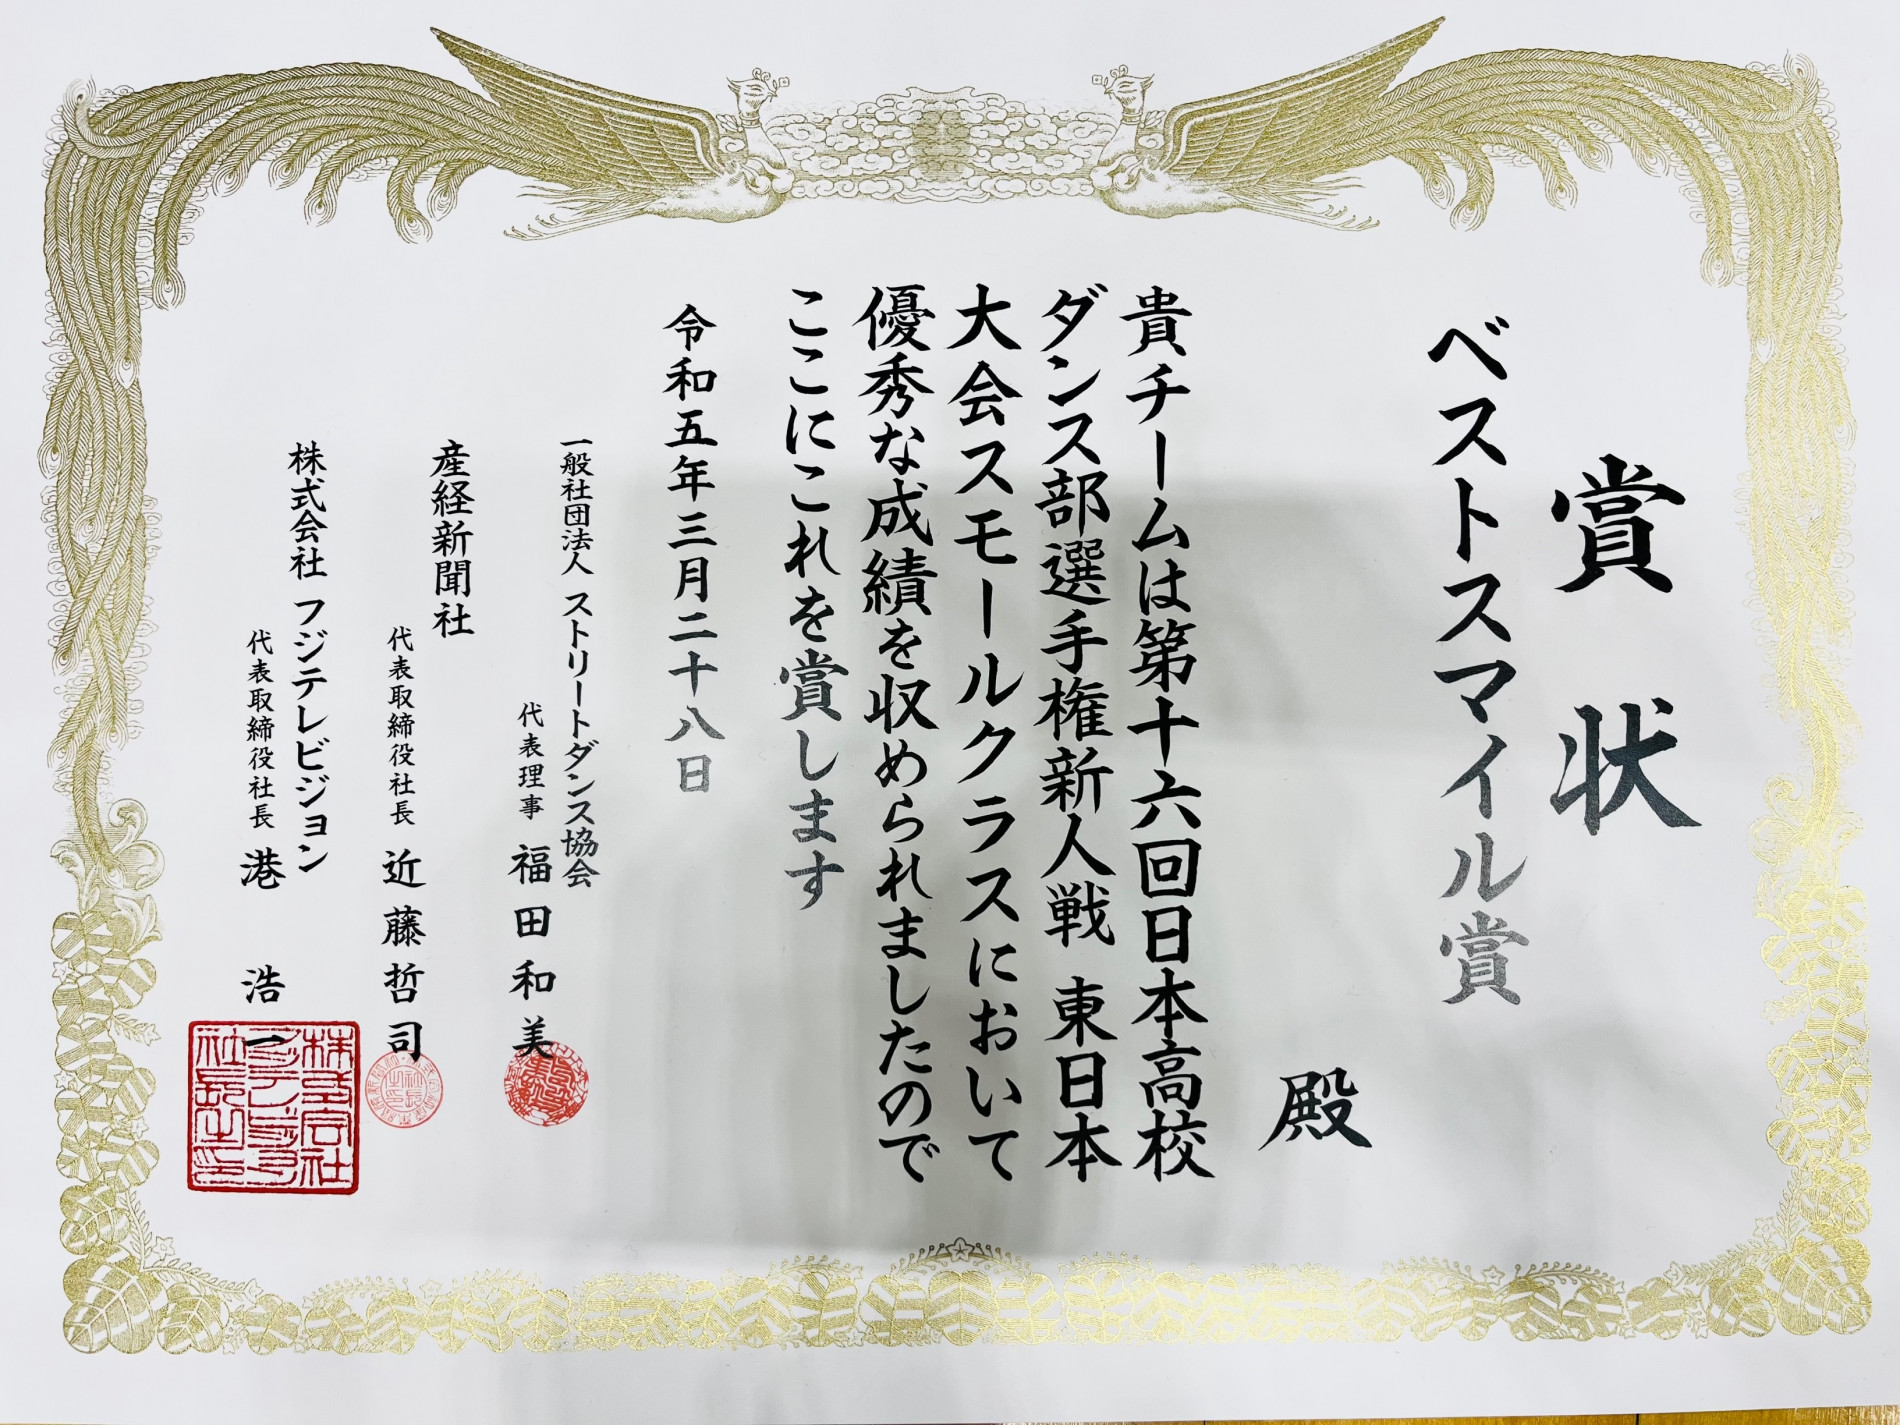 賞状
ベストスマイル賞
殿
貴チームは第十六回日本高校
ダンス部選手権新人戦 東日本
大会スモールクラスにおいて
優秀な成績を収められましたので
ここにこれを賞します
令和五年三月二十八日
一般社団法人 ストリートダンス協会
代表理事 福田和美
産経新聞社
代表取締役社長 近藤哲司
株式会社 フジテレビジョン
代表取締役社長 港 浩一
株式会社
フジテレビジョン
社長之印